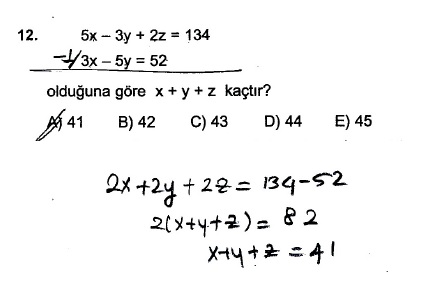 12. 5x – 3y + 2z = 134
-1/ 3x – 5y = 52
olduğuna göre x + y + z kaçtır?
A) 41 B) 42 C) 43 D) 44 E) 45
2x + 2y + 2z = 134 - 52
2(x+y+z) = 82
x+y+z = 41